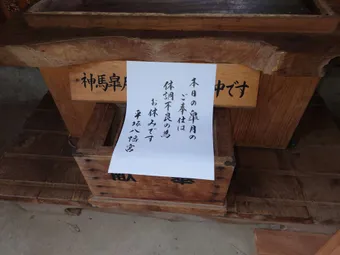 神馬皐月 中です
本日の皐月の
ご奉仕は
体調不良の為
お休みです
平塚八幡宮